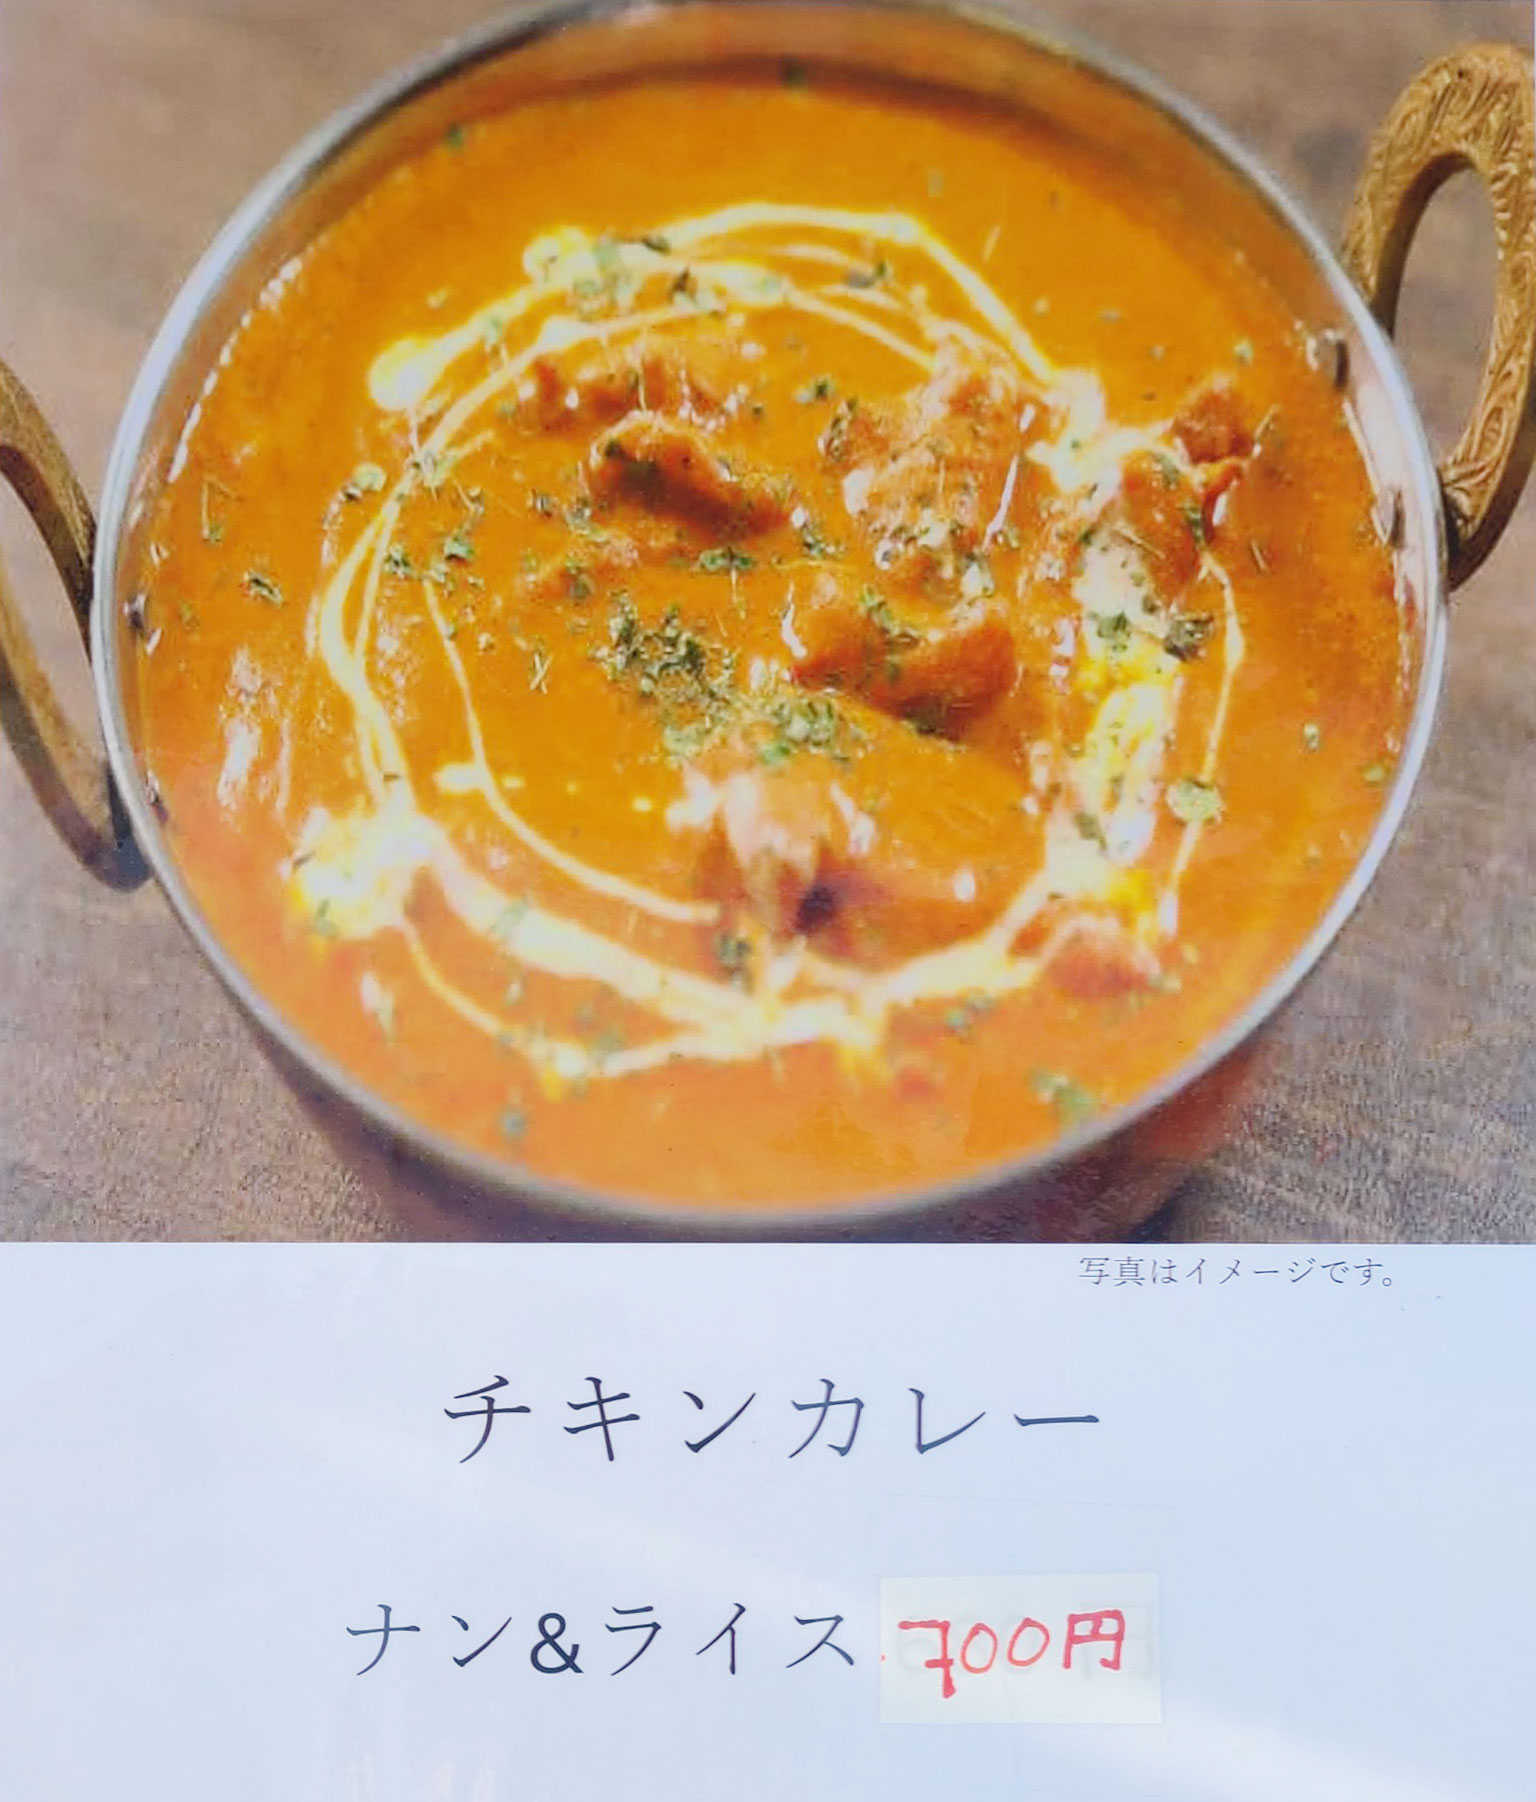 写真はイメージです。
チキンカレー
ナン&ライス 700円